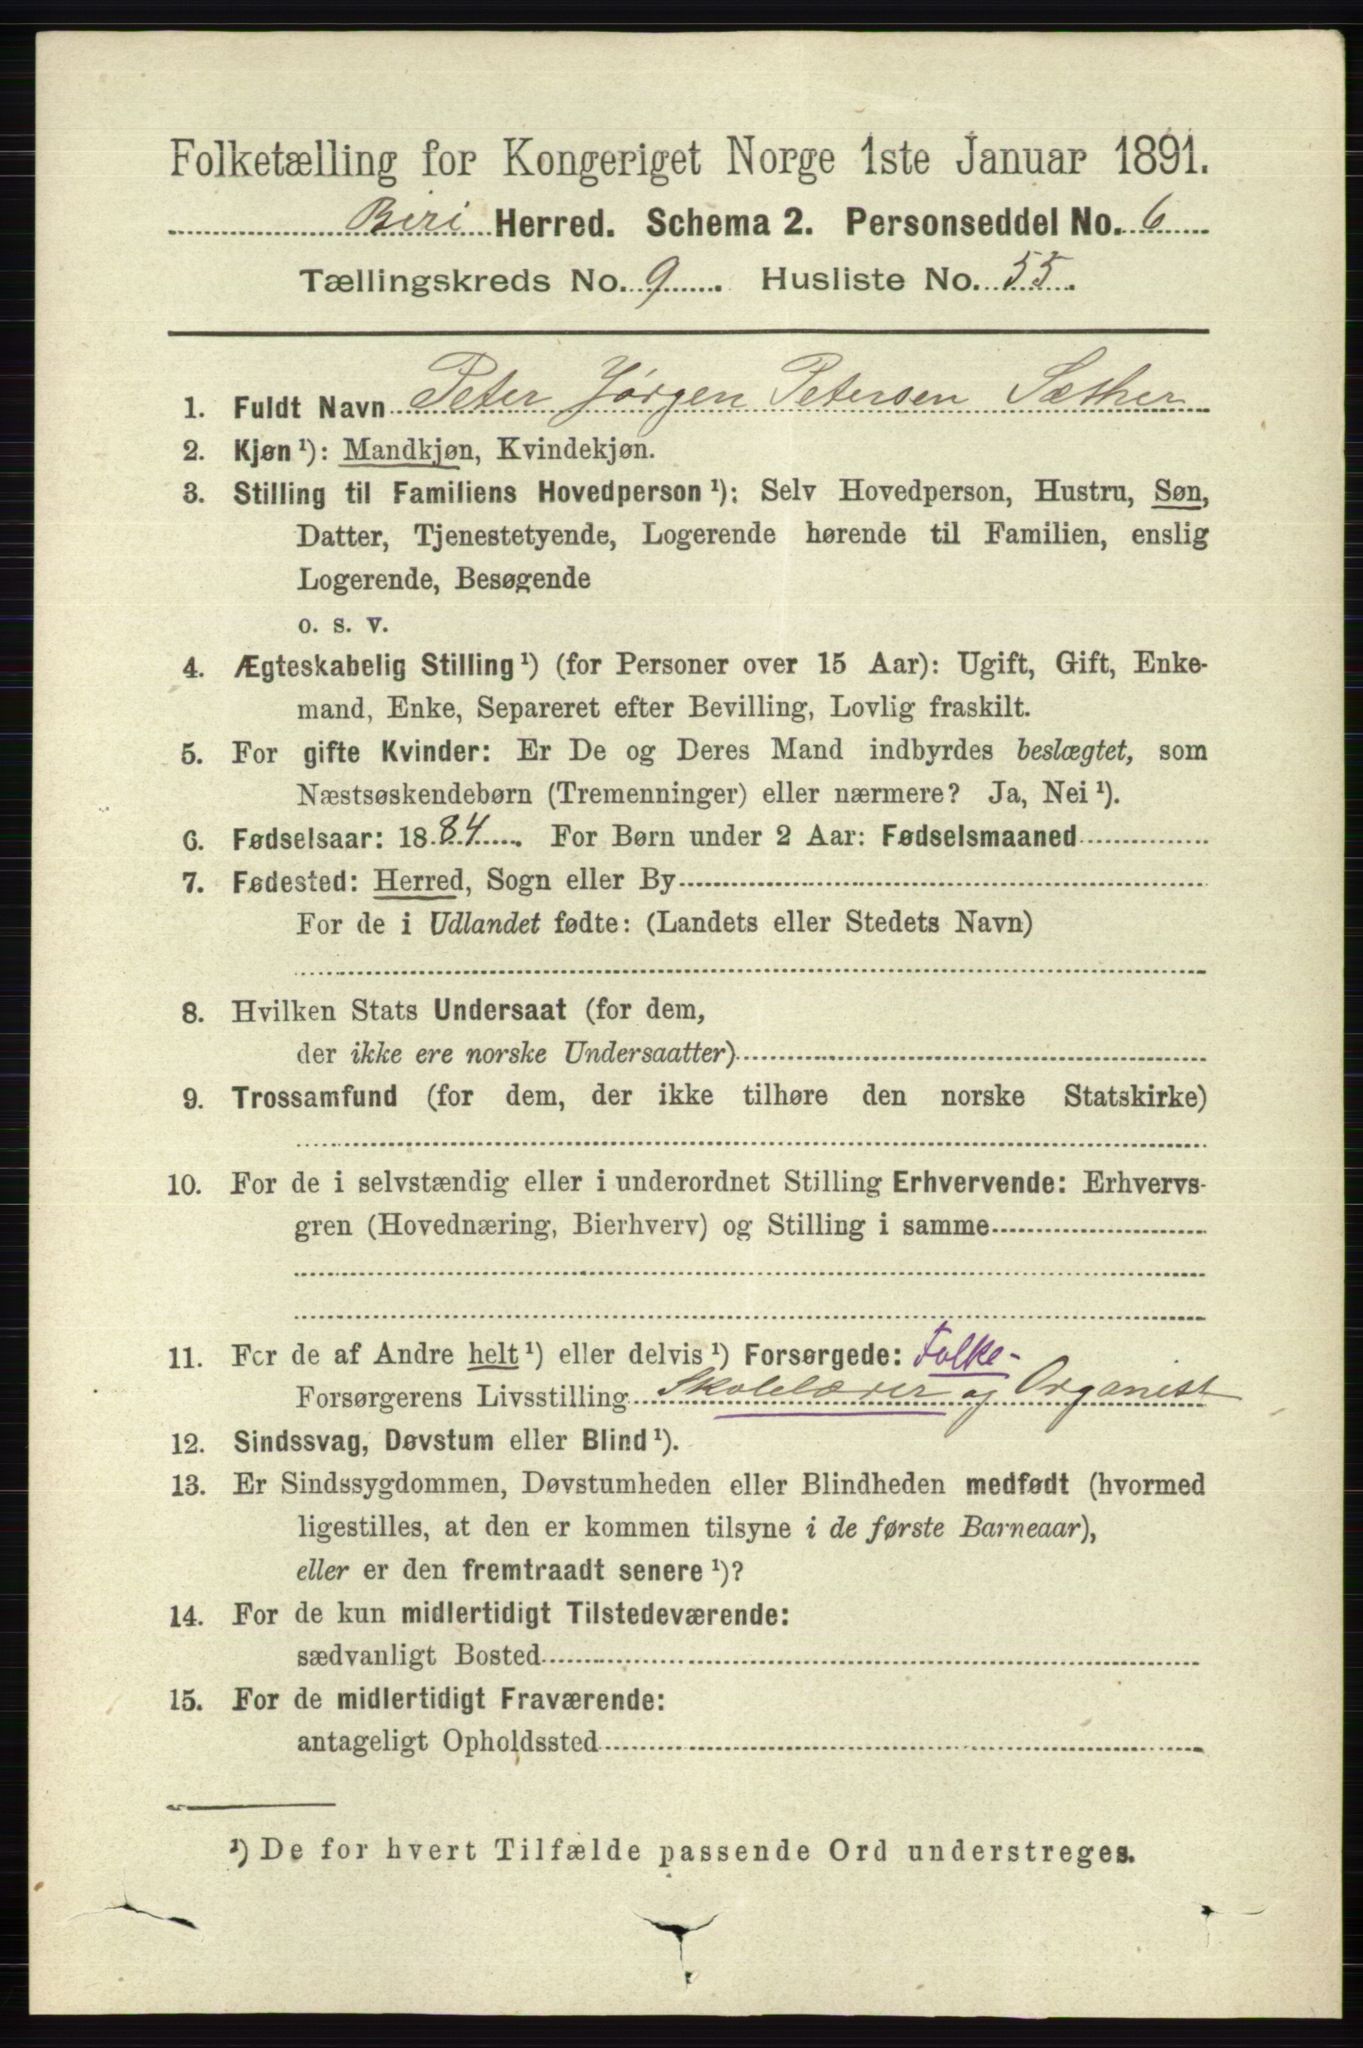 Folketælling for Kongeriget Norge 1ste Januar 1891.
Biri Herred. Schema 2. Personseddel No. 6
Tællingskreds No. 9. Husliste No. 55.
1. Fuldt Navn Peter Jørgen Petersen Sæther
2. Kjøn ¹): Mandkjøn, Kvindekjøn.
3. Stilling til Familiens Hovedperson ¹): Selv Hovedperson, Hustru, Søn,
Datter, Tjenestetyende, Logerende hørende til Familien, enslig
Logerende, Besøgende
o. s. v.
4. Ægteskabelig Stilling ¹) (for Personer over 15 Aar): Ugift, Gift, Enke-
mand, Enke, Separeret efter Bevilling, Lovlig fraskilt.
5. For gifte Kvinder: Er De og Deres Mand indbyrdes beslægtet, som
Næstsøskendebørn (Tremenninger) eller nærmere? Ja, Nei ¹).
6. Fødselsaar: 1884. For Børn under 2 Aar: Fødselsmaaned
7. Fødested: Herred, Sogn eller By
For de i Udlandet fødte: (Landets eller Stedets Navn)
8. Hvilken Stats Undersaat (for dem,
der ikke ere norske Undersaatter)
9. Trossamfund (for dem, der ikke tilhøre den norske Statskirke)
10. For de i selvstændig eller i underordnet Stilling Erhvervende: Erhvervs-
gren (Hovednæring, Bierhverv) og Stilling i samme
11. For de af Andre helt ¹) eller delvis ¹) Forsørgede: Folke-
Forsørgerens Livsstilling Skolelærer og Organist
12. Sindssvag, Døvstum eller Blind ¹).
13. Er Sindssygdommen, Døvstumheden eller Blindheden medfødt (hvormed
ligestilles, at den er kommen tilsyne i de første Barneaar),
eller er den fremtraadt senere ¹)?
14. For de kun midlertidigt Tilstedeværende:
sædvanligt Bosted
15. For de midlertidigt Fraværende:
antageligt Opholdssted
¹) De for hvert Tilfælde passende Ord understreges.